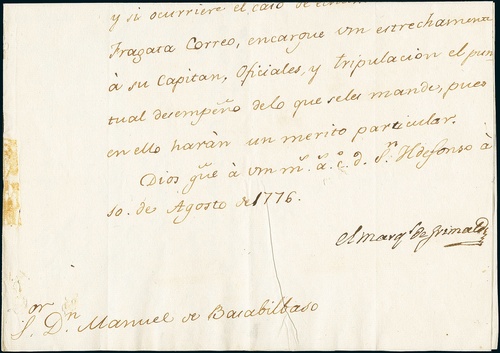 y si ocurriere el caso de
Fragata Correo, encargue vm estrechamente
à su Capitan, Oficiales, y tripulacion el pun-
tual desempeño delo que seles mande, pues
en ello haràn un merito particular.
Dios gue. à vm ms. as. Sn. Ildefonso à
10. de Agosto de 1776.
el marqs. de Grimaldi
Sor. Dn. Manuel de Basabilbaso